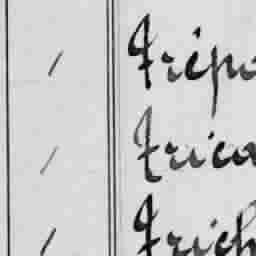 / Fripo
/ Frica
/ Frich